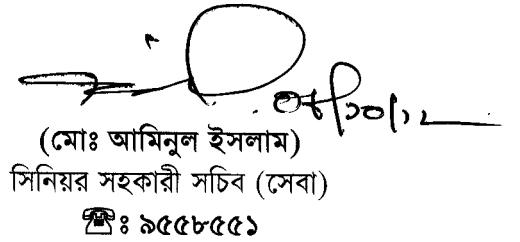 (মোঃ আমিনুল ইসলাম)
সিনিয়র সহকারী সচিব (সেবা)
☎ঃ ৯৫৫৮৫৫১